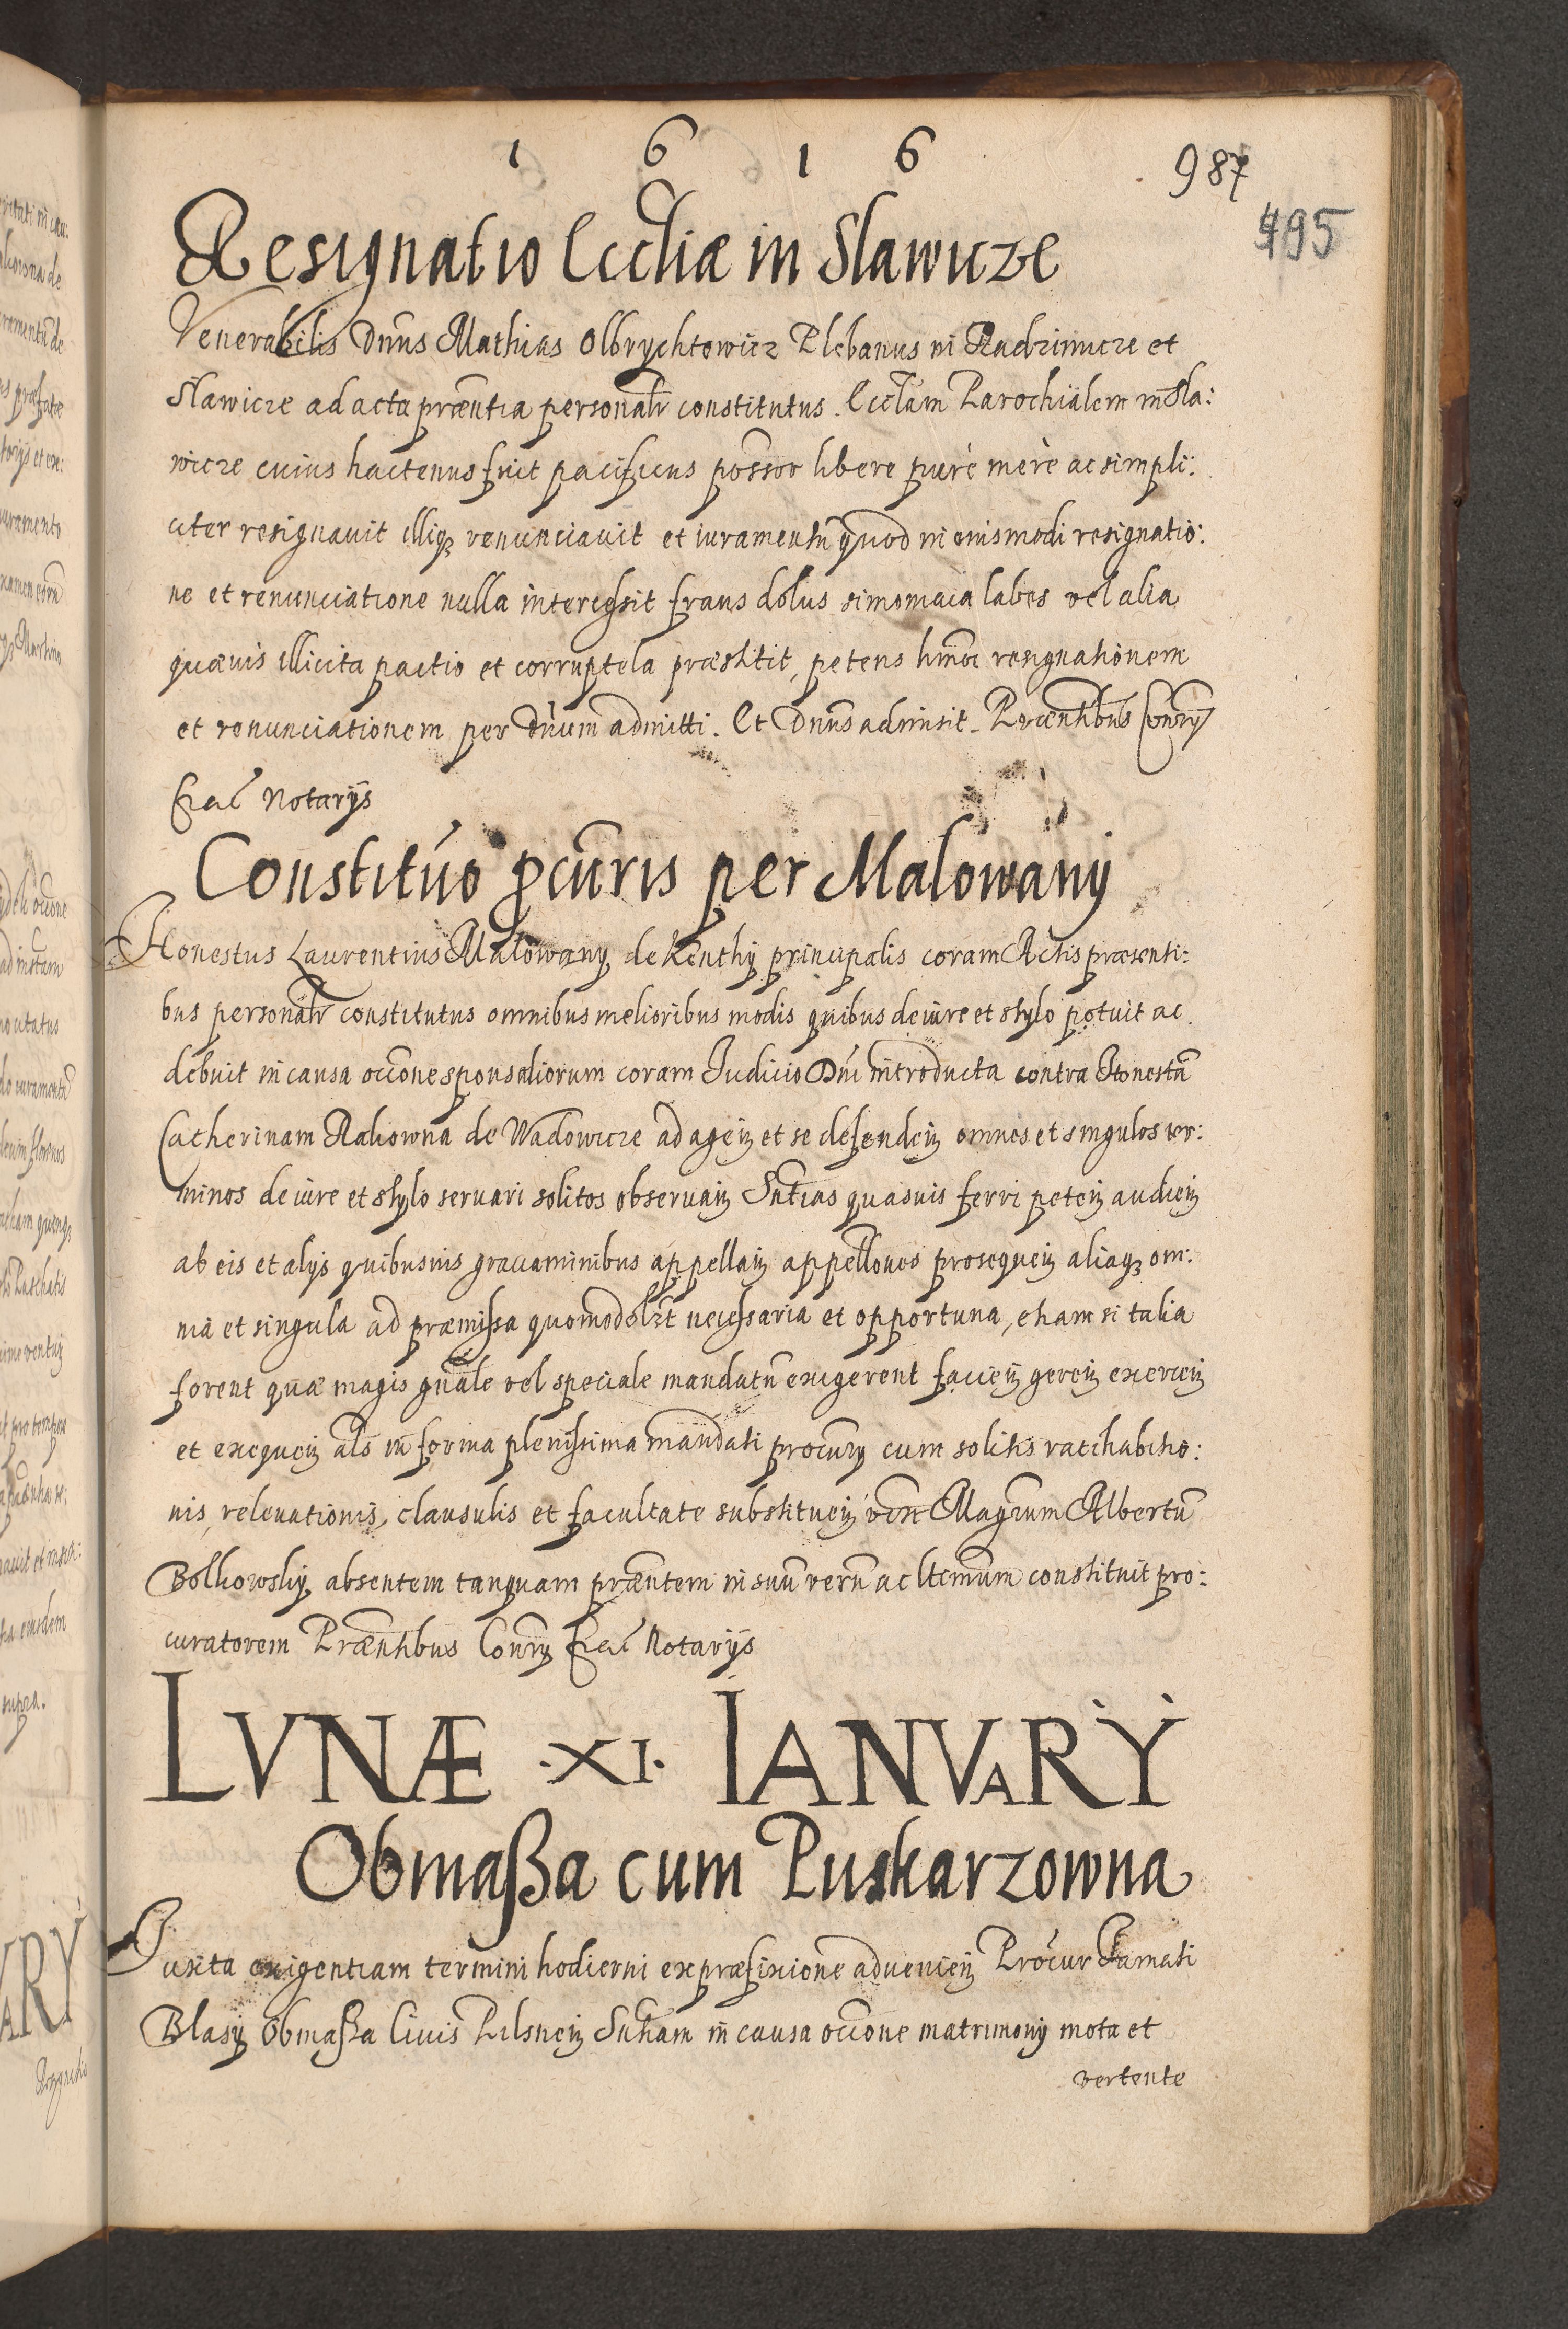 1 6 1 6
987
495
Resignatio Eccliæ in Slawicze
Venerabilis Dnus Mathias Olbrychtowicz Plebanus in Radzimicze et
Slawicze ad acta præntia personalr constitutus. Ecclam Parochialem in Sla:
wicze cuius hactenus fuit pacificus possor libere purè merè ac simpli:
citer resignauit illiqz renunciauit et iuramentū quod in eiusmodi resignatio:
ne et renunciatione nulla intercessit fraus dolus simoniaca labes vel alia
quæuis illicita pactio et corruptela præstitit, petens hmoi resignationem
et renunciationem per Dnum admitti. Et Dnus admisit. Præntibus
Notarijs
Constitutio pcuris per Malowany
Honestus Laurentius Malowany de Kenthy principalis coram Actis præsenti:
bus personalr constitutus omnibus melioribus modis quibus de iure et stylo potuit ac
debuit in causa occone sponsaliorum coram Iudicio Dni introducta contra Honestā
Catherinam Rakowna de Wadowicze ad agen et se defenden omnes et singulos ter:
minos de iure et stylo seruari solitos obseruan Sntias quasuis ferri peten audien
ab eis et alijs quibusuis grauaminibus appellan appellones prosequen aliaqz om:
nia et singula ad præmissa quomodolzt necessaria et opportuna, etiam si talia
forent quæ magis gnale vel speciale mandatū exigerent facien geren exercen
et exequen als in forma plenissima mandati procury cum solitis ratihabitio:
nis, releuationis, clausulis et facultate substituen Magrum Albertū
Bolkowsky absentem tanquam præntem in suū verū ac ltimum constituit pro:
curatorem Præntibus Notarijs
LVNÆ .XI. IANVARY
Obmaßa cum Puskarzowna
Iuxta exigentiam termini hodierni ex præfixione aduenien Procur Famati
Blasy Obmaßa Ciuis Pilsnen Sntiam in causa occone matrimonij mota et
vertente